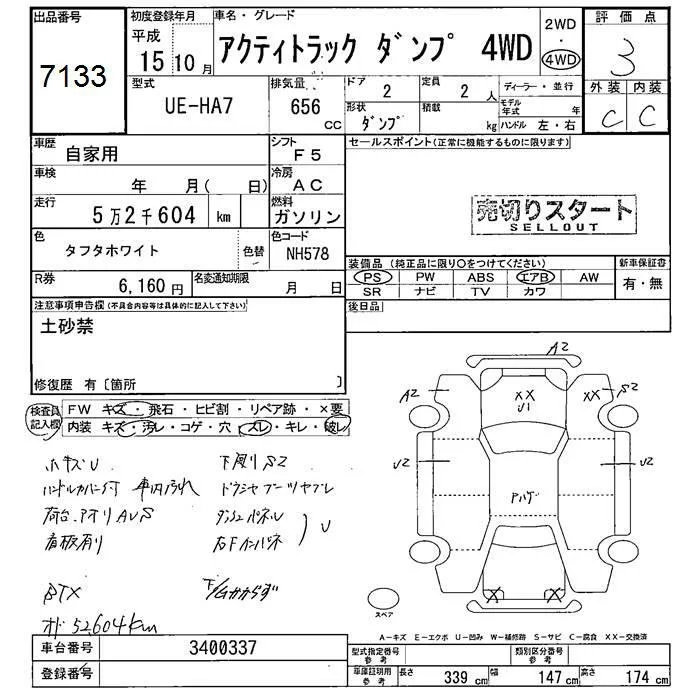 出品番号 初度登録年月 車名・グレード 2WD 評価点
平成 ・
7133 15年10月 アクティトラック ダンプ 4WD 4WD 3
型式 排気量 ドア 定員 ディーラー・並行 外装 内装
UE-HA7 656 2 2人 モデル年式 年 C C
cc 形状 ダンプ 積載 kg ハンドル 左・右
車歴 自家用 シフト F5 セールスポイント(正常に機能するものに限ります)
車検 年 月( 日) 冷房 AC
走行 5万2千604 km 燃料 ガソリン 売切りスタート
SELLOUT
色 タフタホワイト 色替 色コード NH578
装備品(純正品に限り○をつけてください) 新車保証書
R券 6,160円 名変通知期限 月 日 PS PW ABS エアB AW 有・無
SR ナビ TV カワ
注意事項申告欄(不具合内容等は具体的に記入して下さい) 後日品
土砂禁
修復歴 有〔箇所 〕
検査員記入欄 FW キズ・飛石・ヒビ割・リペア跡・×要
内装 キズ・汚レ・コゲ・穴・スレ・キレ・破レ
A2
A2 XX XX S2
U1
U2 U2
X X
ホキズU 下廻りS2
ハンドルカバー付 車内汚れ ドライシャフトブーツヤブレ
荷台、アオリAUS ダッシュパネル
看板有り 右Fインパネ ) U
オド 52,604km
スペア
A-キズ E-エクボ U-凹み W-補修跡 S-サビ C-腐食 XX-交換済
車台番号 3400337
型式指定番号 参考 類別区分番号 参考
登録番号 車庫証明用 参考 長さ 339cm 幅 147cm 高さ 174cm